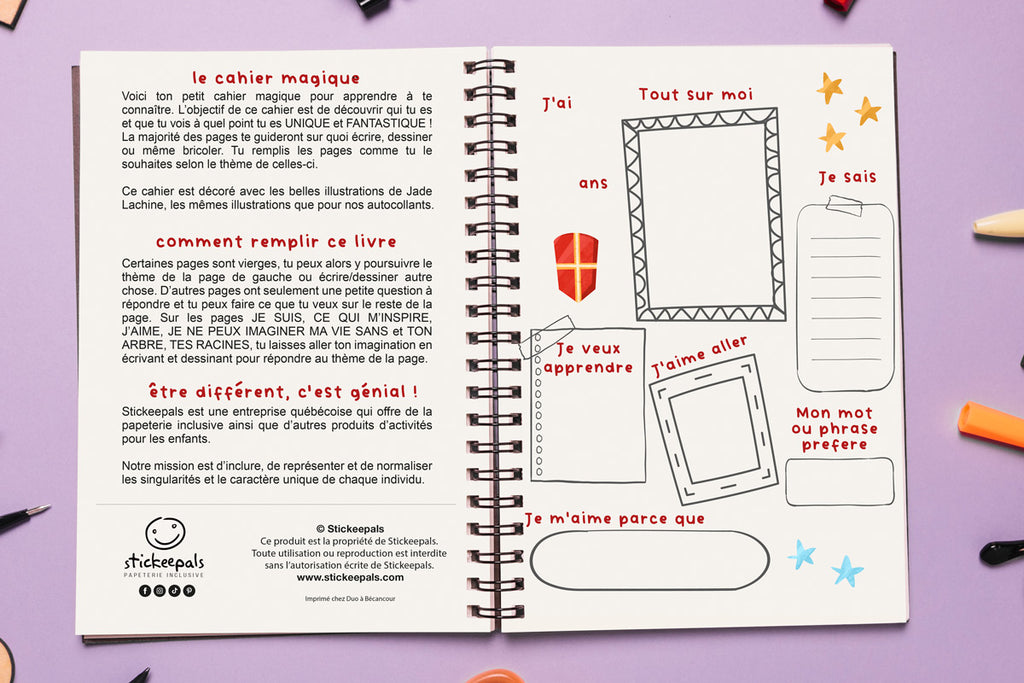 le cahier magique
Voici ton petit cahier magique pour apprendre à te
connaître. L'objectif de ce cahier est de découvrir qui tu es
et que tu vois à quel point tu es UNIQUE et FANTASTIQUE !
La majorité des pages te guideront sur quoi écrire, dessiner
ou même bricoler. Tu remplis les pages comme tu le
souhaites selon le thème de celles-ci.
Ce cahier est décoré avec les belles illustrations de Jade
Lachine, les mêmes illustrations que pour nos autocollants.
comment remplir ce livre
Certaines pages sont vierges, tu peux alors y poursuivre le
thème de la page de gauche ou écrire/dessiner autre
chose. D'autres pages ont seulement une petite question à
répondre et tu peux faire ce que tu veux sur le reste de la
page. Sur les pages JE SUIS, CE QUI M'INSPIRE,
J'AIME, JE NE PEUX IMAGINER MA VIE SANS et TON
ARBRE, TES RACINES, tu laisses aller ton imagination en
écrivant et dessinant pour répondre au thème de la page.
être différent, c'est génial !
Stickeepals est une entreprise québécoise qui offre de la
papeterie inclusive ainsi que d'autres produits d'activités
pour les enfants.
Notre mission est d'inclure, de représenter et de normaliser
les singularités et le caractère unique de chaque individu.
stickeepals
PAPETERIE INCLUSIVE
© Stickeepals
Ce produit est la propriété de Stickeepals.
Toute utilisation ou reproduction est interdite
sans l'autorisation écrite de Stickeepals.
www.stickeepals.com
Imprimé chez Duo à Bécancour
Tout sur moi
J'ai
ans
Je sais
Je veux
apprendre
J'aime aller
Mon mot
ou phrase
prefere
Je m'aime parce que